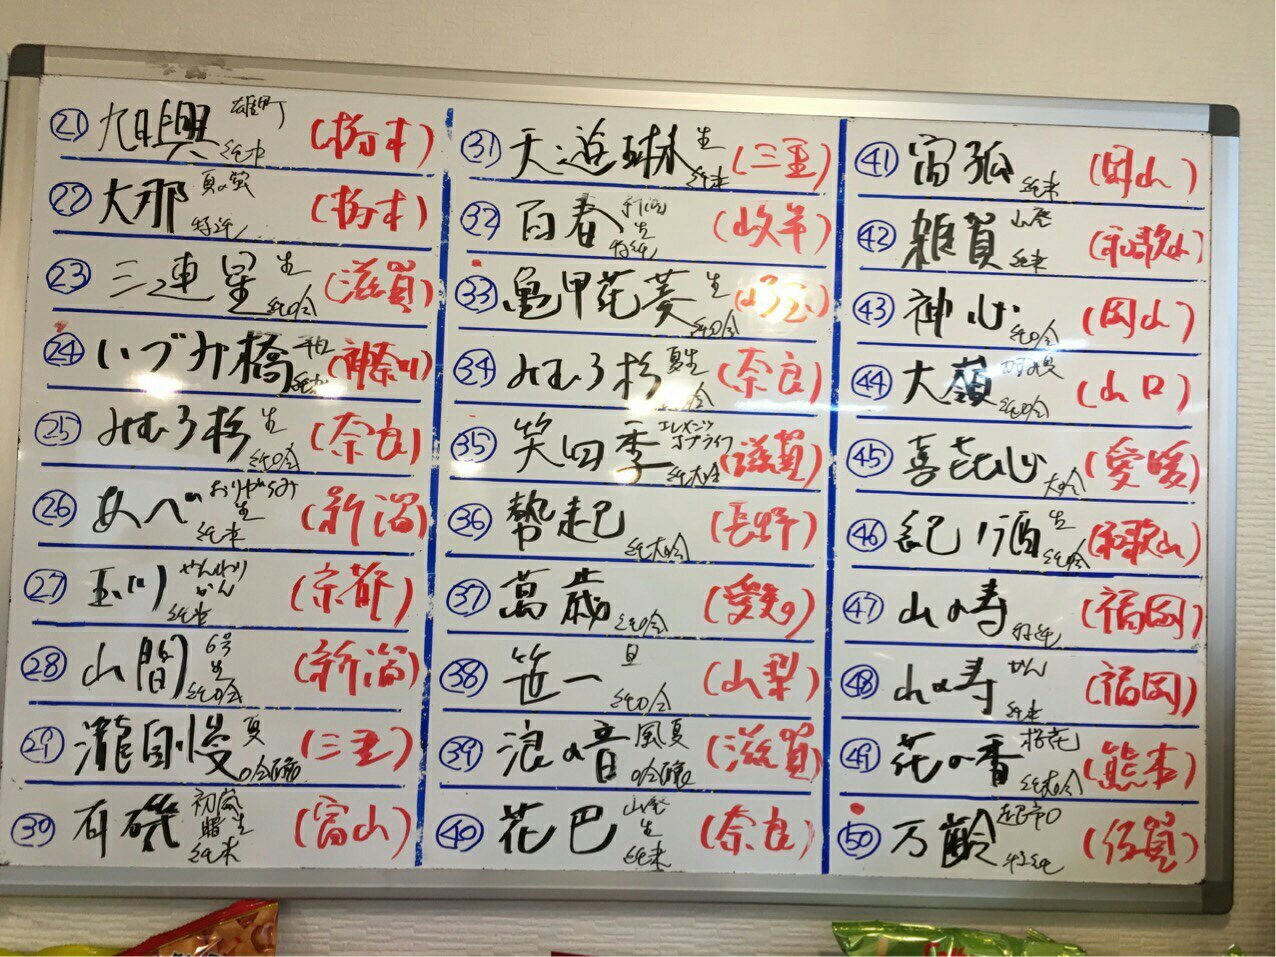 ㉑ 旭興 雄町 純米 (栃木)
㉒ 大那 夏の酒 特純 (栃木)
㉓ 三連星 生 純吟 (滋賀)
㉔ いづみ橋 純米 (神奈川)
㉕ みむろ杉 生 純吟 (奈良)
㉖ あべ おりがらみ 生 純米 (新潟)
㉗ 玉川 やんわり かん 純米 (京都)
㉘ 山間 6号 生 純吟 (新潟)
㉙ 瀧自慢 夏 吟醸 (三重)
㉚ 有磯 曙 初嵐 生 純米 (富山)
㉛ 天遊琳 生 純米 (三重)
㉜ 百春 生 特純 (岐阜)
㉝ 亀甲花菱 生 純吟 (埼玉)
㉞ みむろ杉 夏生 純吟 (奈良)
㉟ 笑四季 エレメンツ オブ ライフ 純大吟 (滋賀)
㊱ 勢起 純大吟 (長野)
㊲ 萬歳 純吟 (愛知)
㊳ 笹一 旦 純吟 (山梨)
㊴ 浪の音 風夏 吟醸 (滋賀)
㊵ 花巴 山廃 生 純米 (奈良)
㊶ 宙狐 純米 (岡山)
㊷ 雑賀 山廃 純米 (和歌山)
㊸ 神心 純吟 (岡山)
㊹ 大嶺 純吟 (山口)
㊺ 喜㐂心 大吟 (愛媛)
㊻ 紀ノ酒 生 純吟 (和歌山)
㊼ 山の寿 特純 (福岡)
㊽ 山の寿 かん 純米 (福岡)
㊾ 花の香 桜花 純大吟 (熊本)
㊿ 万齢 超辛口 特純 (佐賀)